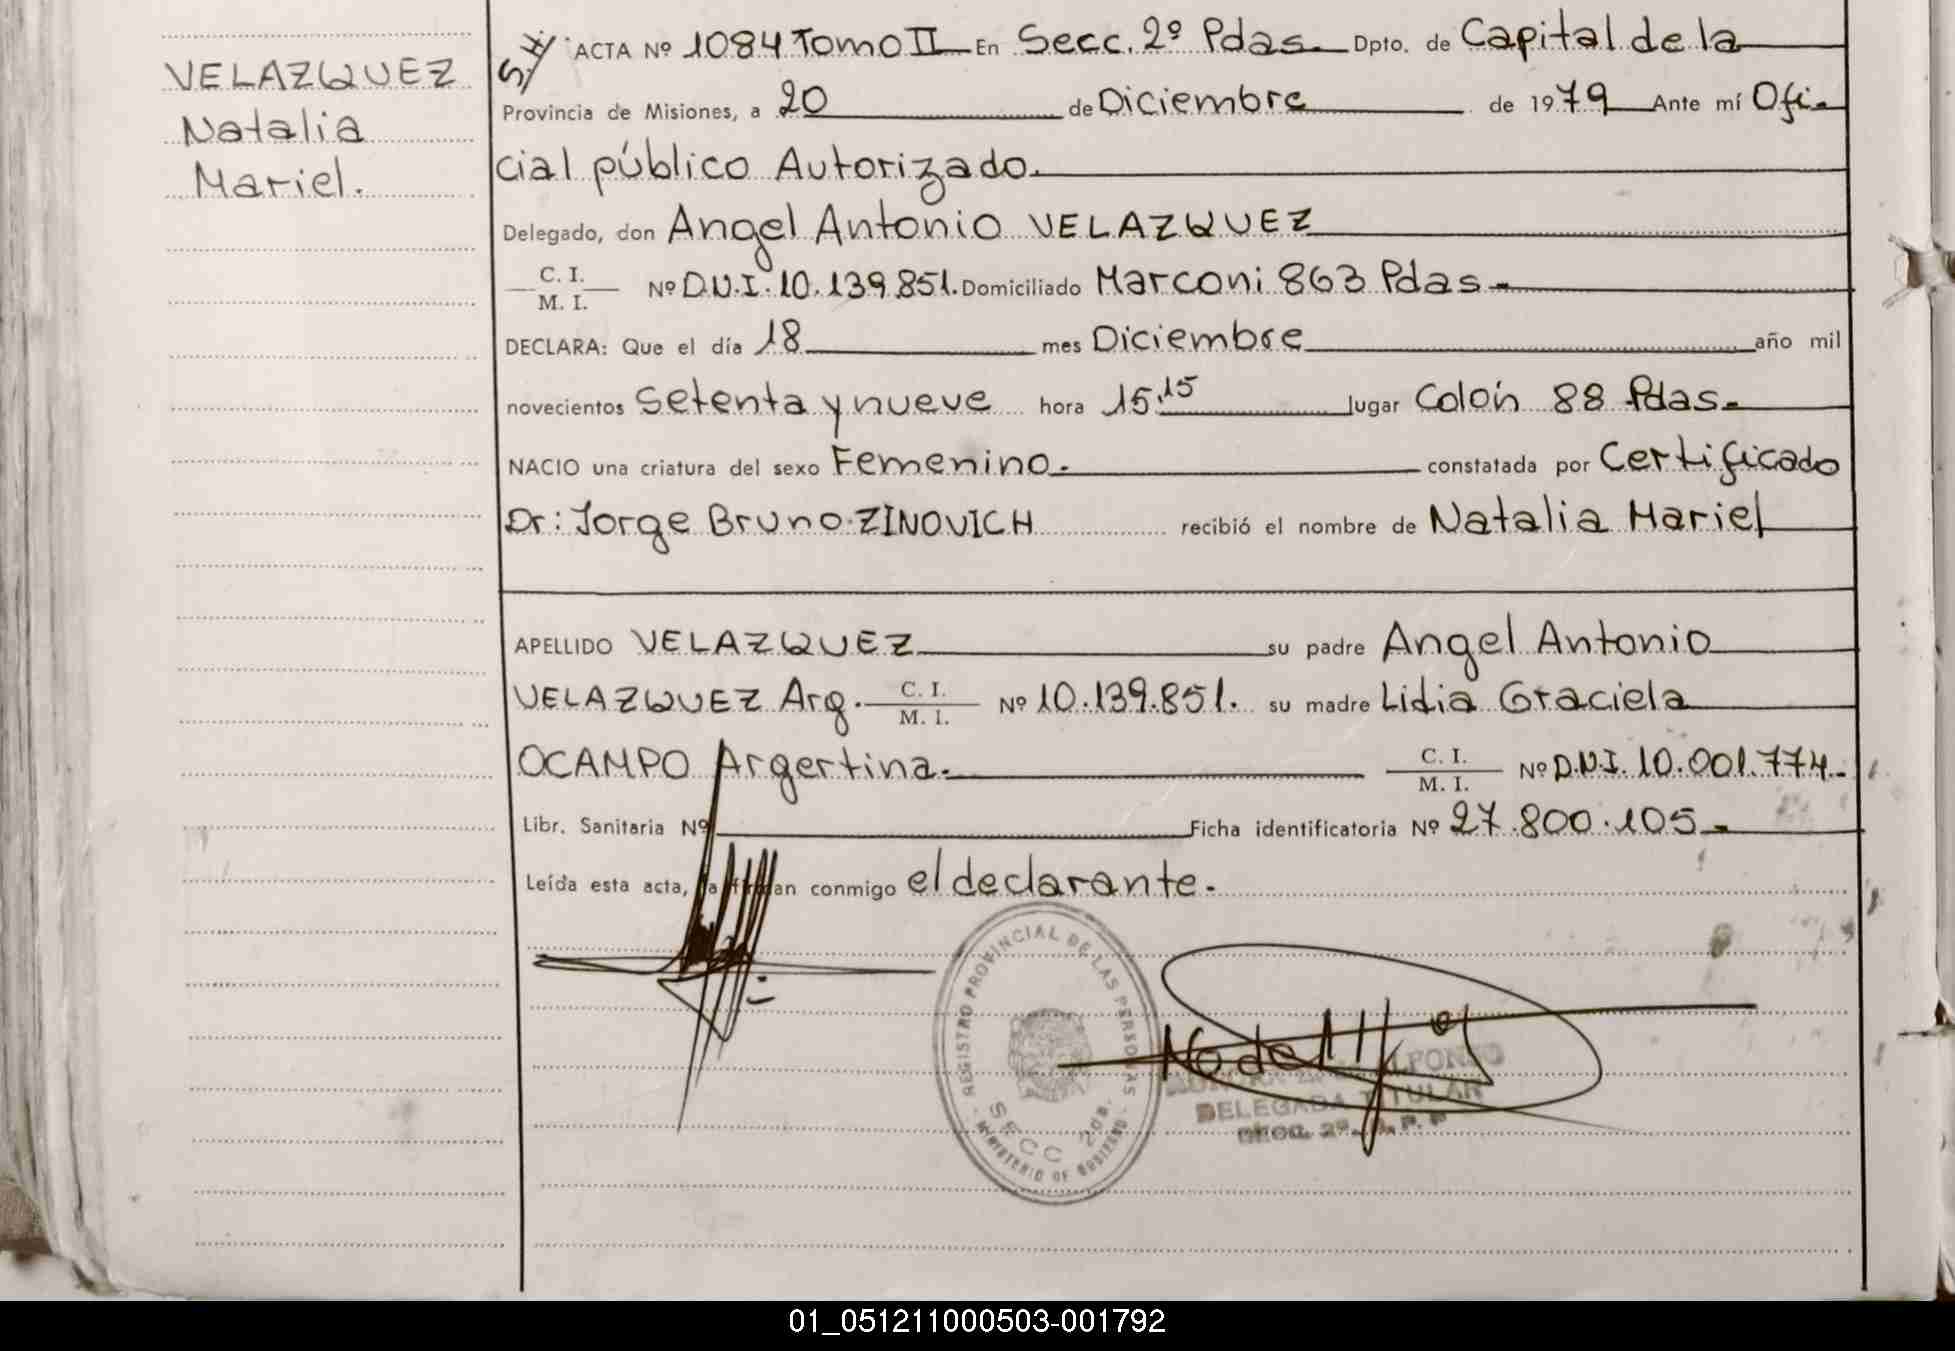 VELAZQUEZ
Natalia
Mariel.
S/H ACTA Nº 1084 Tomo II En Secc. 2º Pdas. Dpto. de Capital de la
Provincia de Misiones, a 20 de Diciembre de 1979 Ante mí Ofi-
cial público Autorizado.
Delegado, don Angel Antonio VELAZQUEZ
C. I.
M. I. Nº D.N.I. 10.139.851. Domiciliado Marconi 863 Pdas-
DECLARA: Que el día 18 mes Diciembre año mil
novecientos setenta y nueve hora 15.15 lugar Colón 88 Pdas.
NACIO una criatura del sexo Femenino. constatada por Certificado
Dr: Jorge Bruno ZINOVICH recibió el nombre de Natalia Mariel
APELLIDO VELAZQUEZ su padre Angel Antonio
VELAZQUEZ Arg. C. I. M. I. Nº 10.139.851. su madre Lidia Graciela
OCAMPO Argentina. C. I. M. I. Nº D.N.I. 10.001.774.
Libr. Sanitaria Nº Ficha identificatoria Nº 27.800.105-
Leída esta acta, la firman conmigo el declarante.
REGISTRO PROVINCIAL DE LAS PERSONAS
SECC 2
MINISTERIO DE GOBIERNO
DELEGADA TITULAR
SECC. 2º
01_051211000503-001792